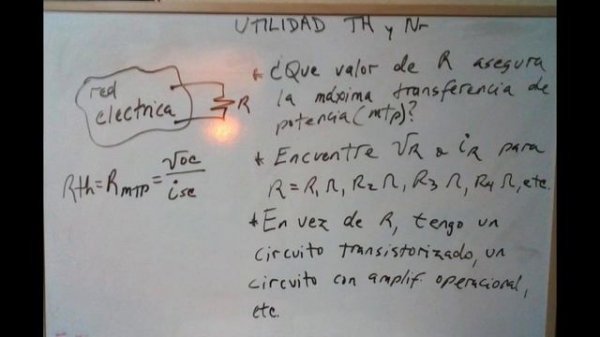 UTILIDAD TH y Nr
red
electrica
R
Rth = RMTP = Voc / isc
* ¿Que valor de R asegura
la máxima transferencia de
potencia (mtp)?
* Encuentre VR o iR para
R = R1 Ω, R2 Ω, R3 Ω, R4 Ω, etc.
* En vez de R, tengo un
circuito transistorizado, un
circuito con amplif. operacional,
etc